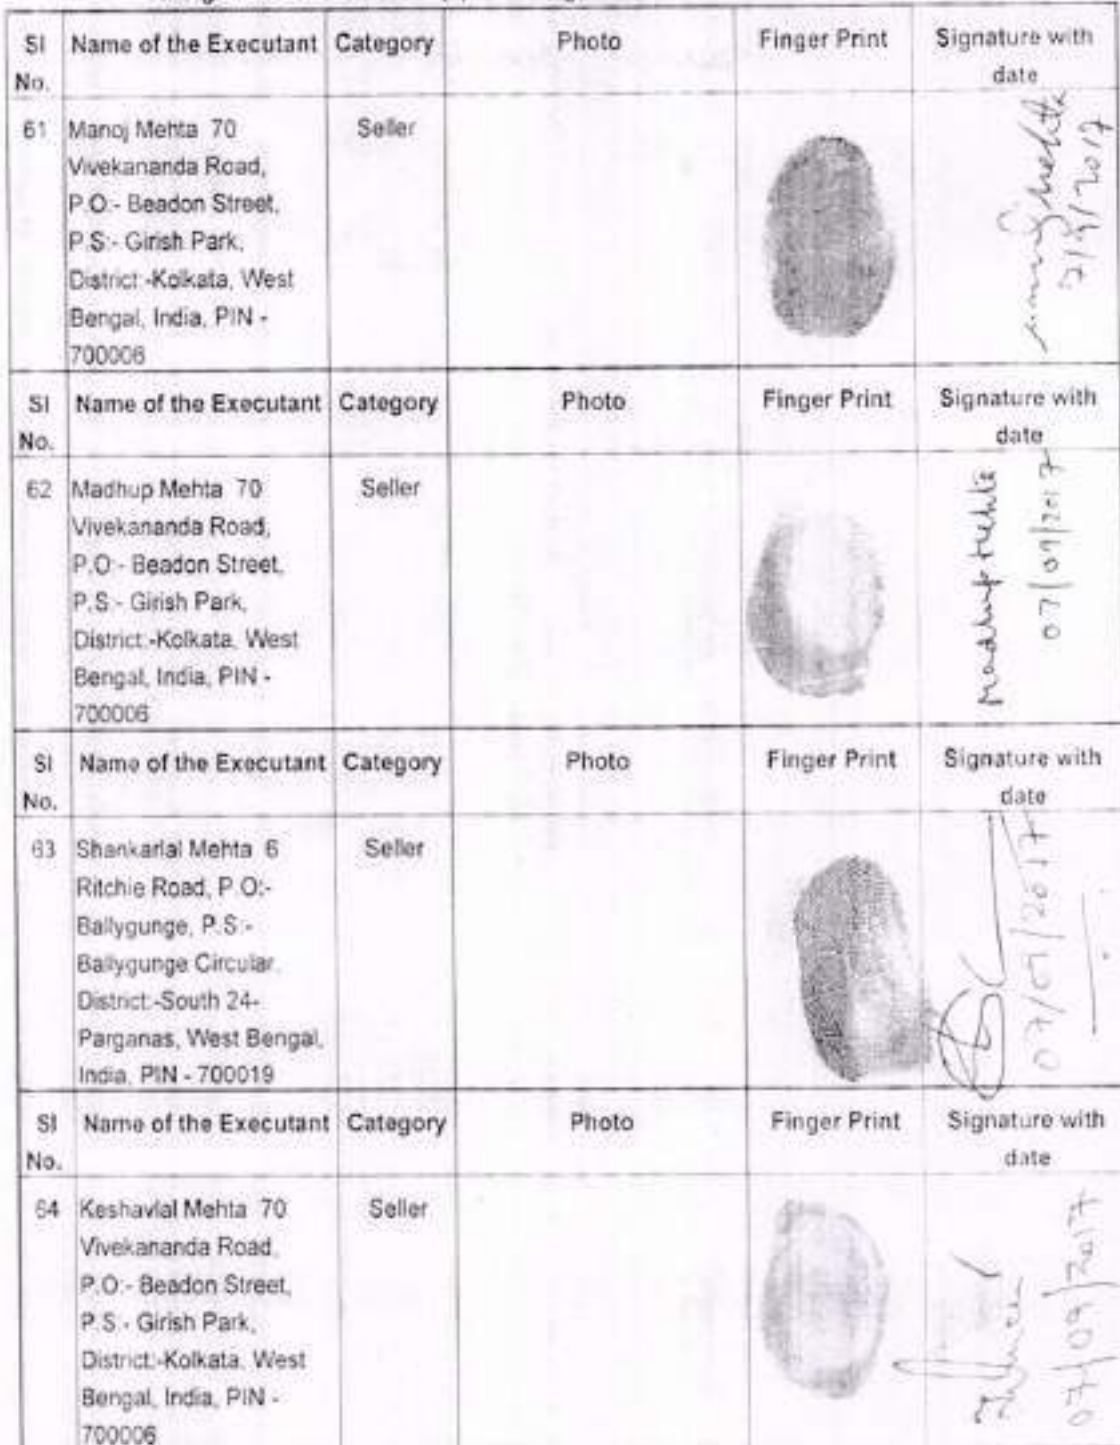 Sl Name of the Executant Category Photo Finger Print Signature with
No. date
61 Manoj Mehta 70 Seller
Vivekananda Road,
P.O:- Beadon Street,
P.S:- Girish Park,
District:-Kolkata, West
Bengal, India, PIN -
700006
Manoj Mehta
7/9/2017
Sl Name of the Executant Category Photo Finger Print Signature with
No. date
62 Madhup Mehta 70 Seller
Vivekananda Road,
P.O:- Beadon Street,
P.S:- Girish Park,
District:-Kolkata, West
Bengal, India, PIN -
700006
Madhup Mehta
07/09/2017
Sl Name of the Executant Category Photo Finger Print Signature with
No. date
63 Shankarlal Mehta 6 Seller
Ritchie Road, P.O:-
Ballygunge, P.S:-
Ballygunge Circular,
District:-South 24-
Parganas, West Bengal,
India, PIN - 700019
07/09/2017
Sl Name of the Executant Category Photo Finger Print Signature with
No. date
64 Keshavlal Mehta 70 Seller
Vivekananda Road,
P.O:- Beadon Street,
P.S:- Girish Park,
District:-Kolkata, West
Bengal, India, PIN -
700006
07/09/2017